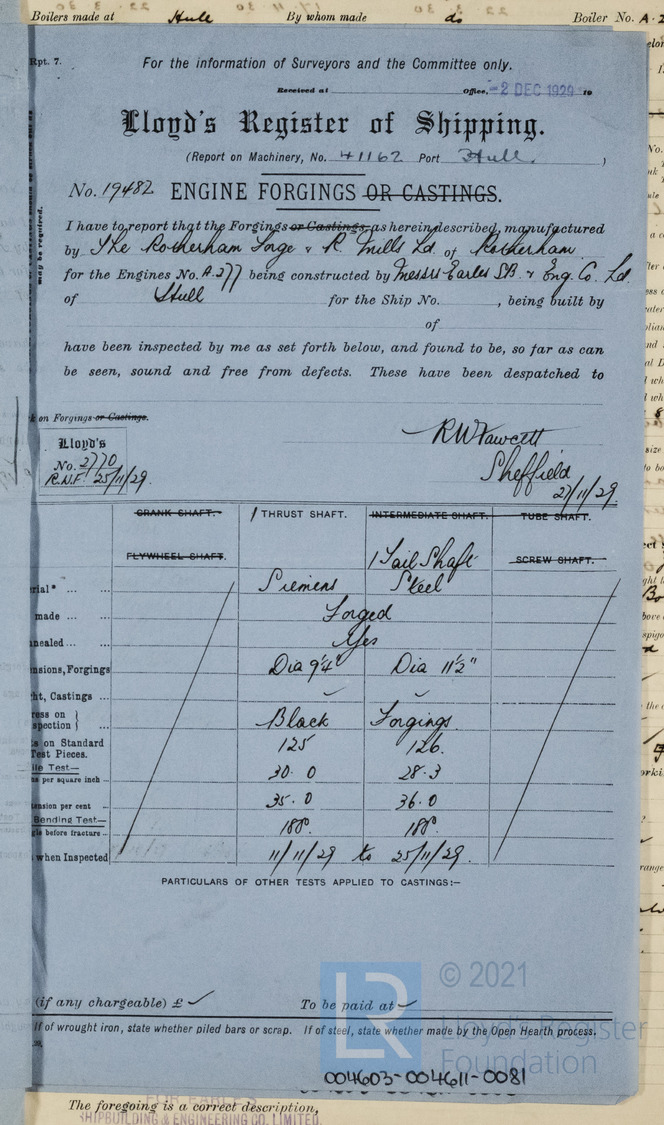 Boilers made at Hull By whom made do Boiler No. A.2
Rpt. 7.
For the information of Surveyors and the Committee only.
Received at Office, -2 DEC 1929 19
Lloyd's Register of Shipping.
(Report on Machinery, No. 41162 Port Hull. )
No. 19482 ENGINE FORGINGS OR CASTINGS.
may be required.
I have to report that the Forgings or Castings, as herein described, manufactured
by The Rotherham Forge & R. Mills Ld of Rotherham
for the Engines No. A.277 being constructed by Messrs Earles SB. & Eng. Co. Ld
of Hull for the Ship No. , being built by
of
have been inspected by me as set forth below, and found to be, so far as can
be seen, sound and free from defects. These have been despatched to
on Forgings or Castings.
Lloyd's
No. 2770
R.W.F. 25/11/29.
RW Fawcett
Sheffield
27/11/29.
CRANK SHAFT. 1 THRUST SHAFT. INTERMEDIATE SHAFT. TUBE SHAFT.
FLYWHEEL SHAFT. 1 Tail Shaft SCREW SHAFT.
rial* Siemens Steel
made Forged
nealed Yes
nsions, Forgings Dia 9¼" Dia 11½"
ht, Castings
ress on Black Forgings.
spection
s on Standard 125 126.
Test Pieces.
ile Test—
ns per square inch 30.0 28.3
ension per cent 35.0 36.0
Bending Test—
gle before fracture 180°. 180°.
when Inspected 11/11/29 to 25/11/29.
PARTICULARS OF OTHER TESTS APPLIED TO CASTINGS:—
(if any chargeable) £ To be paid at
If of wrought iron, state whether piled bars or scrap. If of steel, state whether made by the Open Hearth process.
LR
© 2021
Lloyd's Register
Foundation
004603-004611-0081
The foregoing is a correct description,
FOR EARLE'S
SHIPBUILDING & ENGINEERING CO. LIMITED.